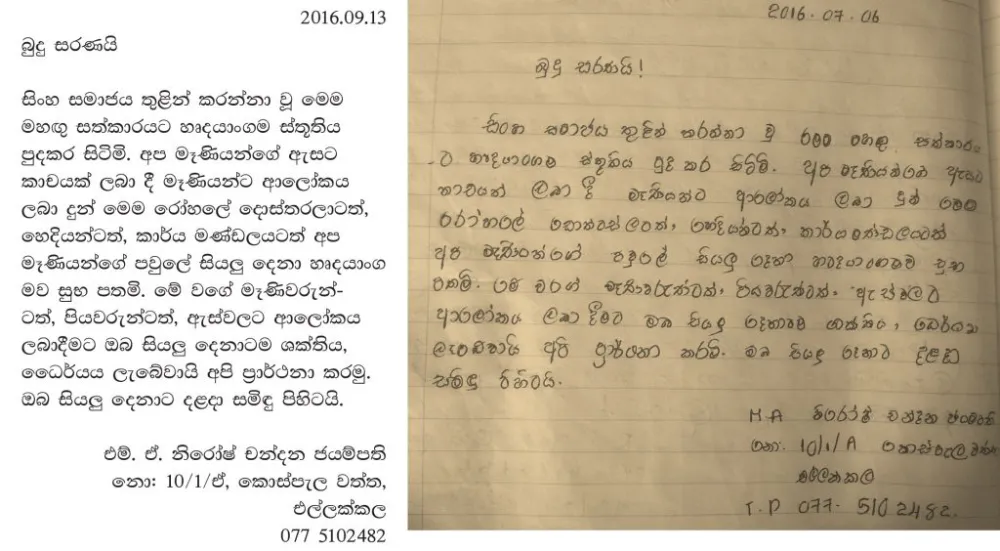 2016.09.13
බුදු සරණයි
සිංහ සමාජය තුළින් කරන්නා වූ මෙම
මහඟු සත්කාරයට හෘදයාංගම ස්තූතිය
පුදකර සිටිමි. අප මෑණියන්ගේ ඇසට
කාචයක් ලබා දී මෑණියන්ට ආලෝකය
ලබා දුන් මෙම රෝහලේ දොස්තරලාටත්,
හෙදියන්ටත්, කාර්ය මණ්ඩලයටත් අප
මෑණියන්ගේ පවුලේ සියලු දෙනා හෘදයාංග
මව සුභ පතමි. මේ වගේ මෑණිවරුන්-
ටත්, පියවරුන්ටත්, ඇස්වලට ආලෝකය
ලබාදීමට ඔබ සියලු දෙනාටම ශක්තිය,
ධෛර්යය ලැබේවායි අපි ප්‍රාර්ථනා කරමු.
ඔබ සියලු දෙනාට දළදා සමිඳු පිහිටයි.
එම්. ඒ. නිරෝෂ් චන්දන ජයම්පති
නො: 10/1/ඒ, කොස්පැල වත්ත,
එල්ලක්කල
077 5102482
2016.07.06
බුදු සරණයි!
සිංහ සමාජය තුළින් කරන්නා වූ මෙම මහඟු සත්කාරය
ට හෘදයාංගම ස්තූතිය පුද කර සිටිමි. අප මෑණියන්ගෙ ඇසට
කාචයක් ලබා දී මෑණියන්ට ආලෝකය ලබා දුන් මෙම
රෝහලේ දොස්තරලටත්, හෙදියන්ටත්, කාර්යමණ්ඩලයටත්
අප මෑණියන්ගේ පවුලේ සියලු දෙනා හෘදයාංගමව සුභ
පතමි. මේ වගේ මෑණිවරුන්ටත්, පියවරුන්ටත්, ඇස්වලට
ආලෝකය ලබාදීමට ඔබ සියලු දෙනාටම ශක්තිය, ධෛර්යය
ලැබෙවායි අපි ප්‍රාර්ථනා කරමි. ඔබ සියලු දෙනාට දළදා
සමිඳු පිහිටයි.
M.A නිරෝෂ් චන්දන ජයම්පති
නො. 10/1/A කොස්පැල වත්ත
එල්ලක්කල
T.P 077-5102482.